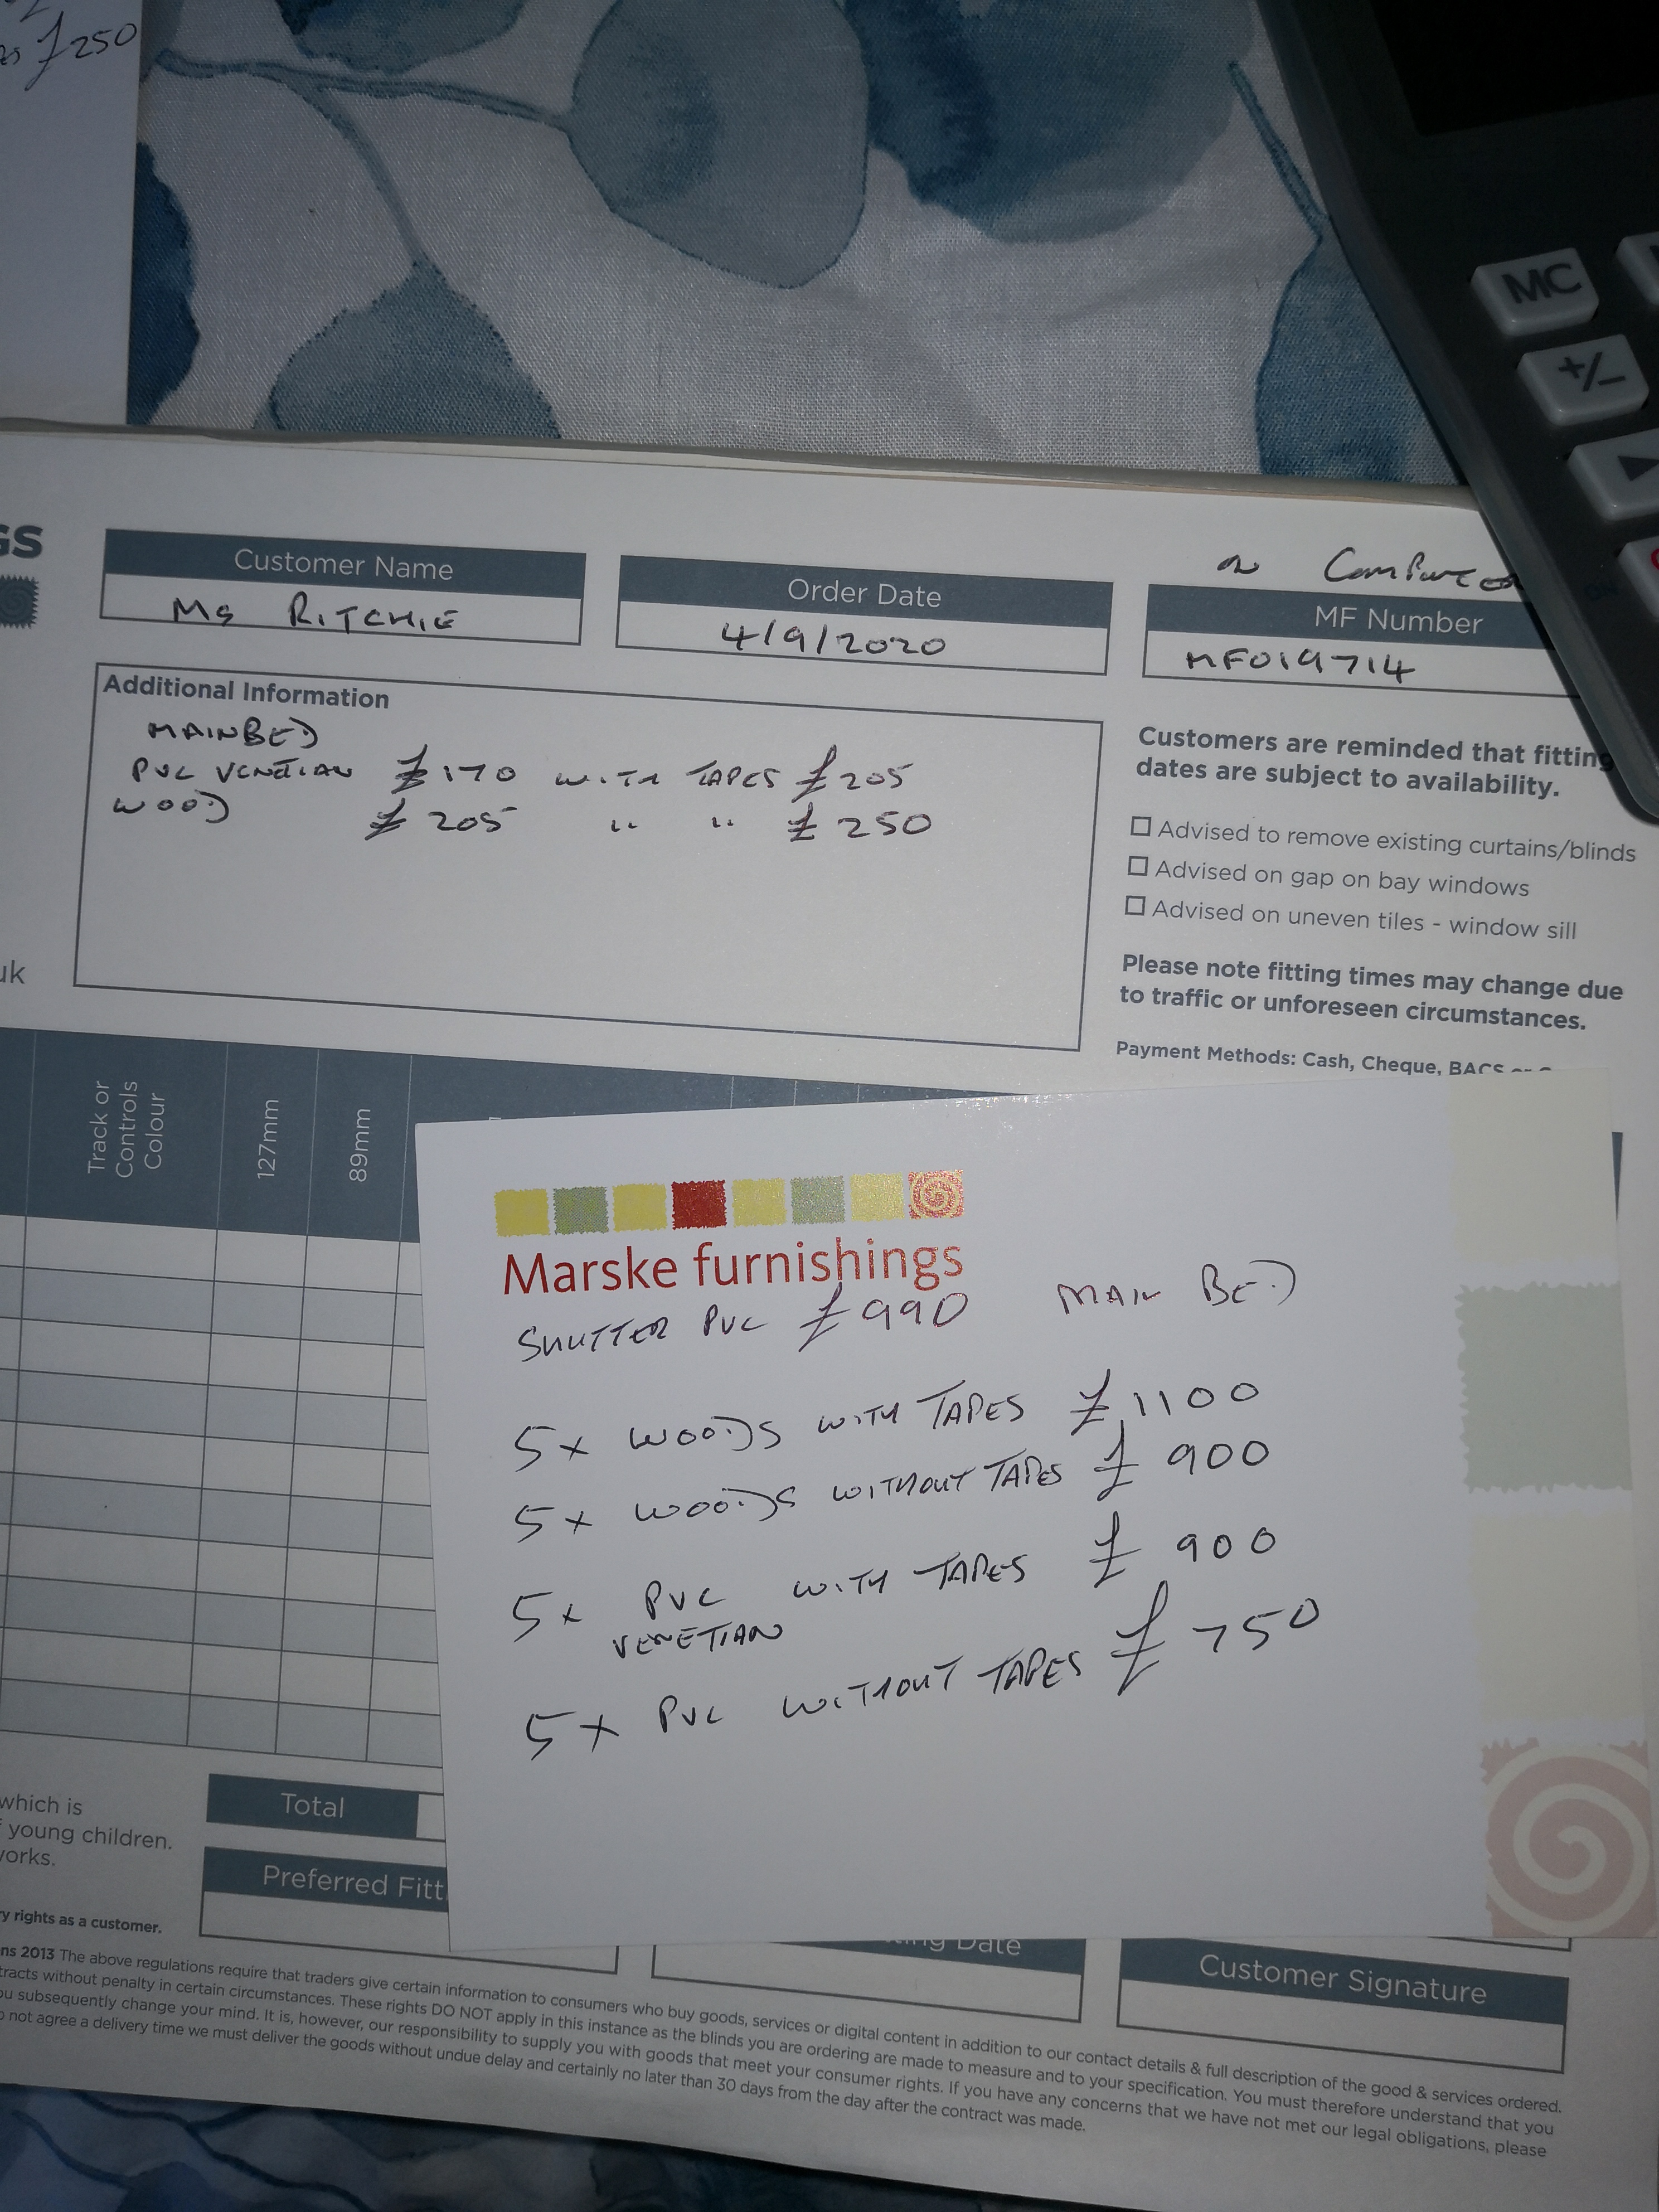 £250
GS
on
Customer Name
Ms RITCHIE
Order Date
4/9/2020
MF Number
MF019714
MC
+/-
Additional Information
MAIN BED
PVC VENETIAN £170 WITH TAPES £205
WOOD £205 " " £250
Customers are reminded that fitting
dates are subject to availability.
Advised to remove existing curtains/blinds
Advised on gap on bay windows
Advised on uneven tiles - window sill
Please note fitting times may change due
to traffic or unforeseen circumstances.
Payment Methods: Cash, Cheque, BACS or
uk
Track or
Controls
Colour
127mm
89mm
Marske furnishings
SHUTTER PVC £990 MAIN BED
5x WOODS WITH TAPES £1100
5x WOODS WITHOUT TAPES £900
5x PVC WITH TAPES £900
VENETIAN
5x PVC WITHOUT TAPES £750
which is
young children.
works.
Total
Preferred Fitt
ry rights as a customer.
ing Date
Customer Signature
ns 2013 The above regulations require that traders give certain information to consumers who buy goods, services or digital content in addition to our contact details & full description of the good & services ordered.
tracts without penalty in certain circumstances. These rights DO NOT apply in this instance as the blinds you are ordering are made to measure and to your specification. You must therefore understand that you
ou subsequently change your mind. It is, however, our responsibility to supply you with goods that meet your consumer rights. If you have any concerns that we have not met our legal obligations, please
o not agree a delivery time we must deliver the goods without undue delay and certainly no later than 30 days from the day after the contract was made.